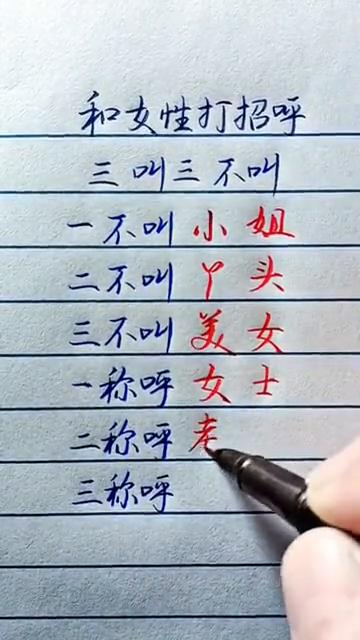 和女性打招呼
三叫三不叫
一不叫小姐
二不叫丫头
三不叫美女
一称呼女士
二称呼
三称呼